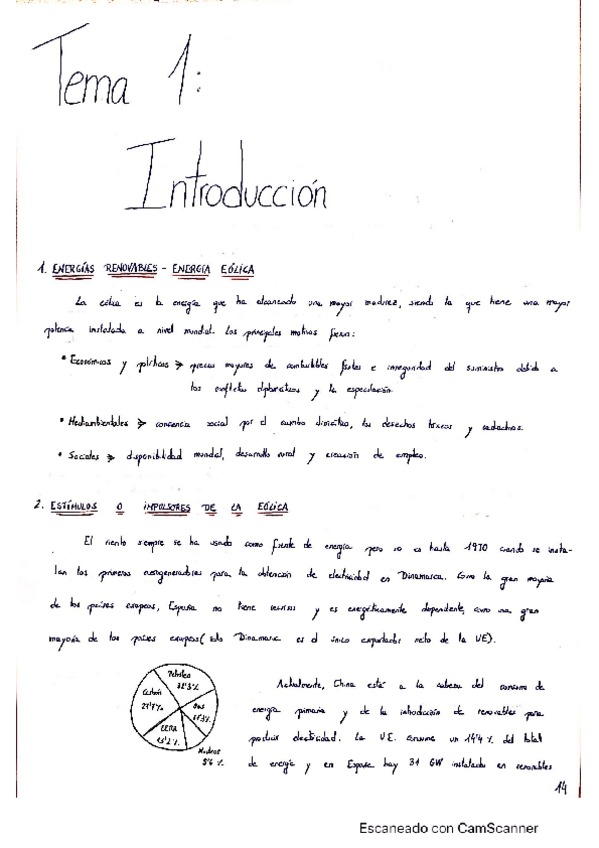 Tema 1:
Introducción
1. ENERGÍAS RENOVABLES - ENERGÍA EÓLICA
La eólica es la energía que ha alcanzado una mayor madurez, siendo la que tiene una mayor
potencia instalada a nivel mundial. Los principales motivos fueron:
• Económicos y políticos → precios mayores de combustibles fósiles e inseguridad del suministro debido a
los conflictos diplomáticos y la especulación.
• Medioambientales → conciencia social por el cambio climático, los desechos tóxicos y
• Sociales → disponibilidad mundial, desarrollo rural y creación de empleo.
2. ESTÍMULOS O IMPULSORES DE LA EÓLICA
El viento siempre se ha usado como fuente de energía pero no es hasta 1970 cuando se insta-
lan los primeros aerogeneradores para la obtención de electricidad en Dinamarca. Como la gran mayoría
de los países europeos, España no tiene recursos y es energéticamente dependiente, como una gran
mayoría de los países europeos (solo Dinamarca es el único exportador neto de la UE).
Petróleo
Carbón
Gas
Nuclear
5'6 %
Actualmente, China está a la cabeza del consumo de
energía primaria y de la introducción de renovables para
producir electricidad. La UE. consume un 14'4 % del total
de energía y en España hay 31 GW instalados en renovables
14
Escaneado con CamScanner